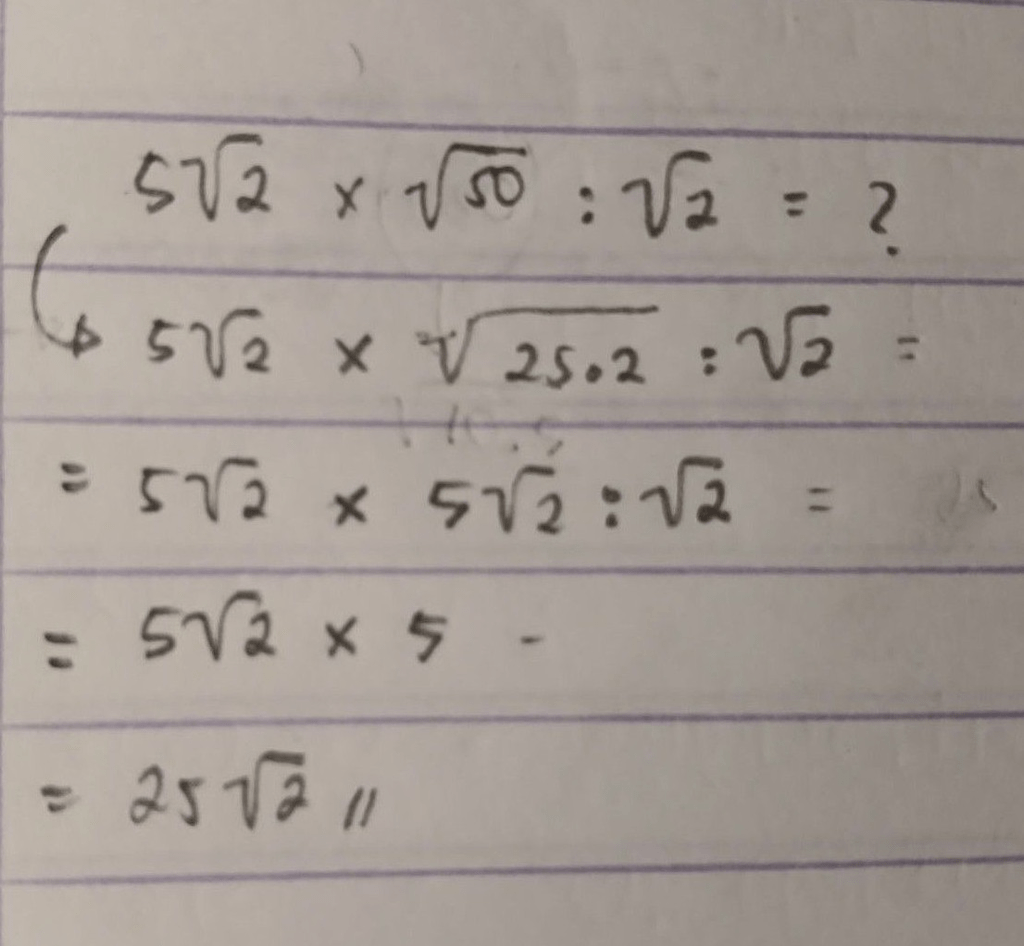 5√2 × √50 : √2 = ?
5√2 × √25.2 : √2 =
= 5√2 × 5√2 : √2 =
= 5√2 × 5 -
= 25√2 //